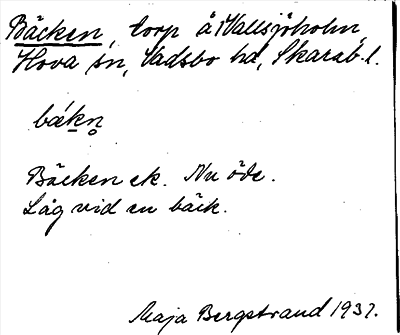 Bäcken, torp å Vallsjöholm,
Hova sn, Vadsbo hd, Skarab. l.
bǽkn̥
Bäcken ek. Nu öde.
Låg vid en bäck.
Maja Bergstrand 1937.